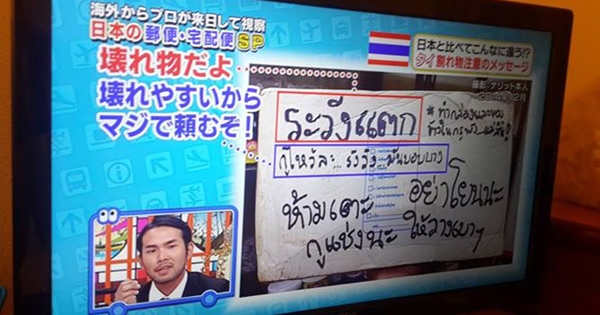 海外からプロが来日して視察
日本の郵便・宅配便SP
壊れ物だよ
壊れやすいから
マジで頼むぞ!
日本と比べてこんなに違う!?
タイ 割れ物注意のメッセージ
撮影:ナリット本人
2014年12月
ระวังแตก
กูไหว้ละ... ระวัง... มันบอบบาง
ห้ามเตะ อย่าโยนนะ
กูแช่งนะ ให้วางเบาๆ